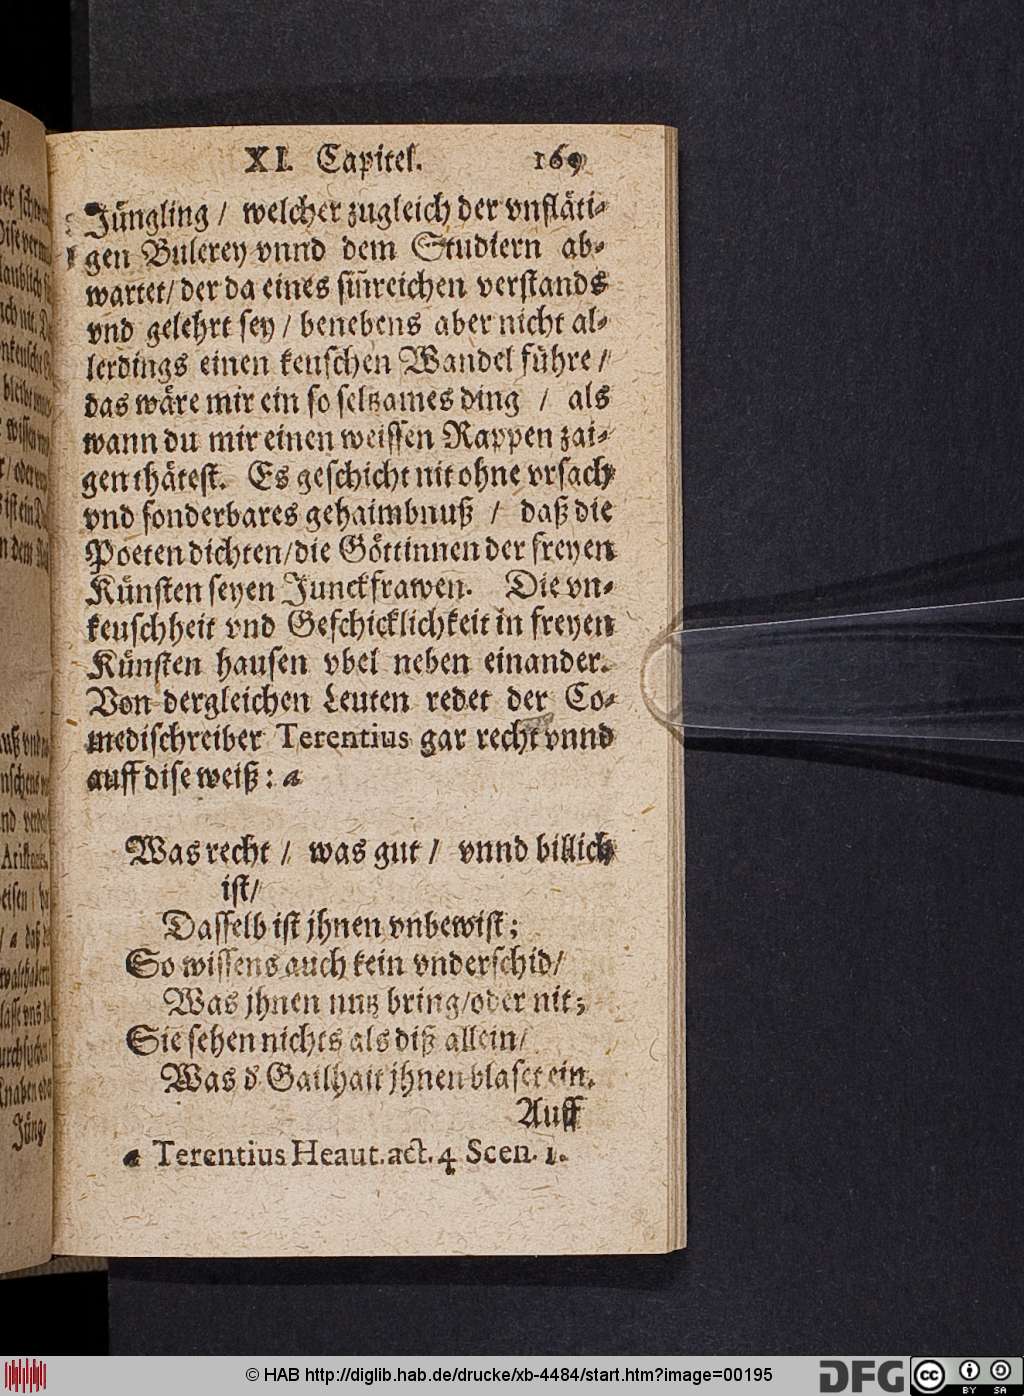 XI. Capitel. 169
Jüngling / welcher zugleich der vnfläti-
gen Bulerey vnnd dem Studiern ab-
wartet / der da eines siñreichen verstands
vnd gelehrt sey / benebens aber nicht al-
lerdings einen keuschen Wandel führe /
das wäre mir ein so seltzames ding / als
wann du mir einen weissen Rappen zai-
gen thätest. Es geschicht nit ohne vrsach
vnd sonderbares gehaimbnuß / daß die
Poeten dichten / die Göttinnen der freyen
Künsten seyen Junckfrawen. Die vn-
keuschheit vnd Geschicklichkeit in freyen
Künsten hausen vbel neben einander.
Von dergleichen Leuten redet der Co-
medischreiber Terentius gar recht vnnd
auff dise weiß : a
Was recht / was gut / vnnd billich
ist /
Dasselb ist jhnen vnbewist ;
So wissens auch kein vnderschid /
Was jhnen nutz bring / oder nit ;
Sie sehen nichts als diß allein /
Was d' Gailhait jhnen blaset ein.
Auff
a Terentius Heaut. act. 4 Scen. 1.
© HAB http://diglib.hab.de/drucke/xb-4484/start.htm?image=00195
DFG
cc BY SA